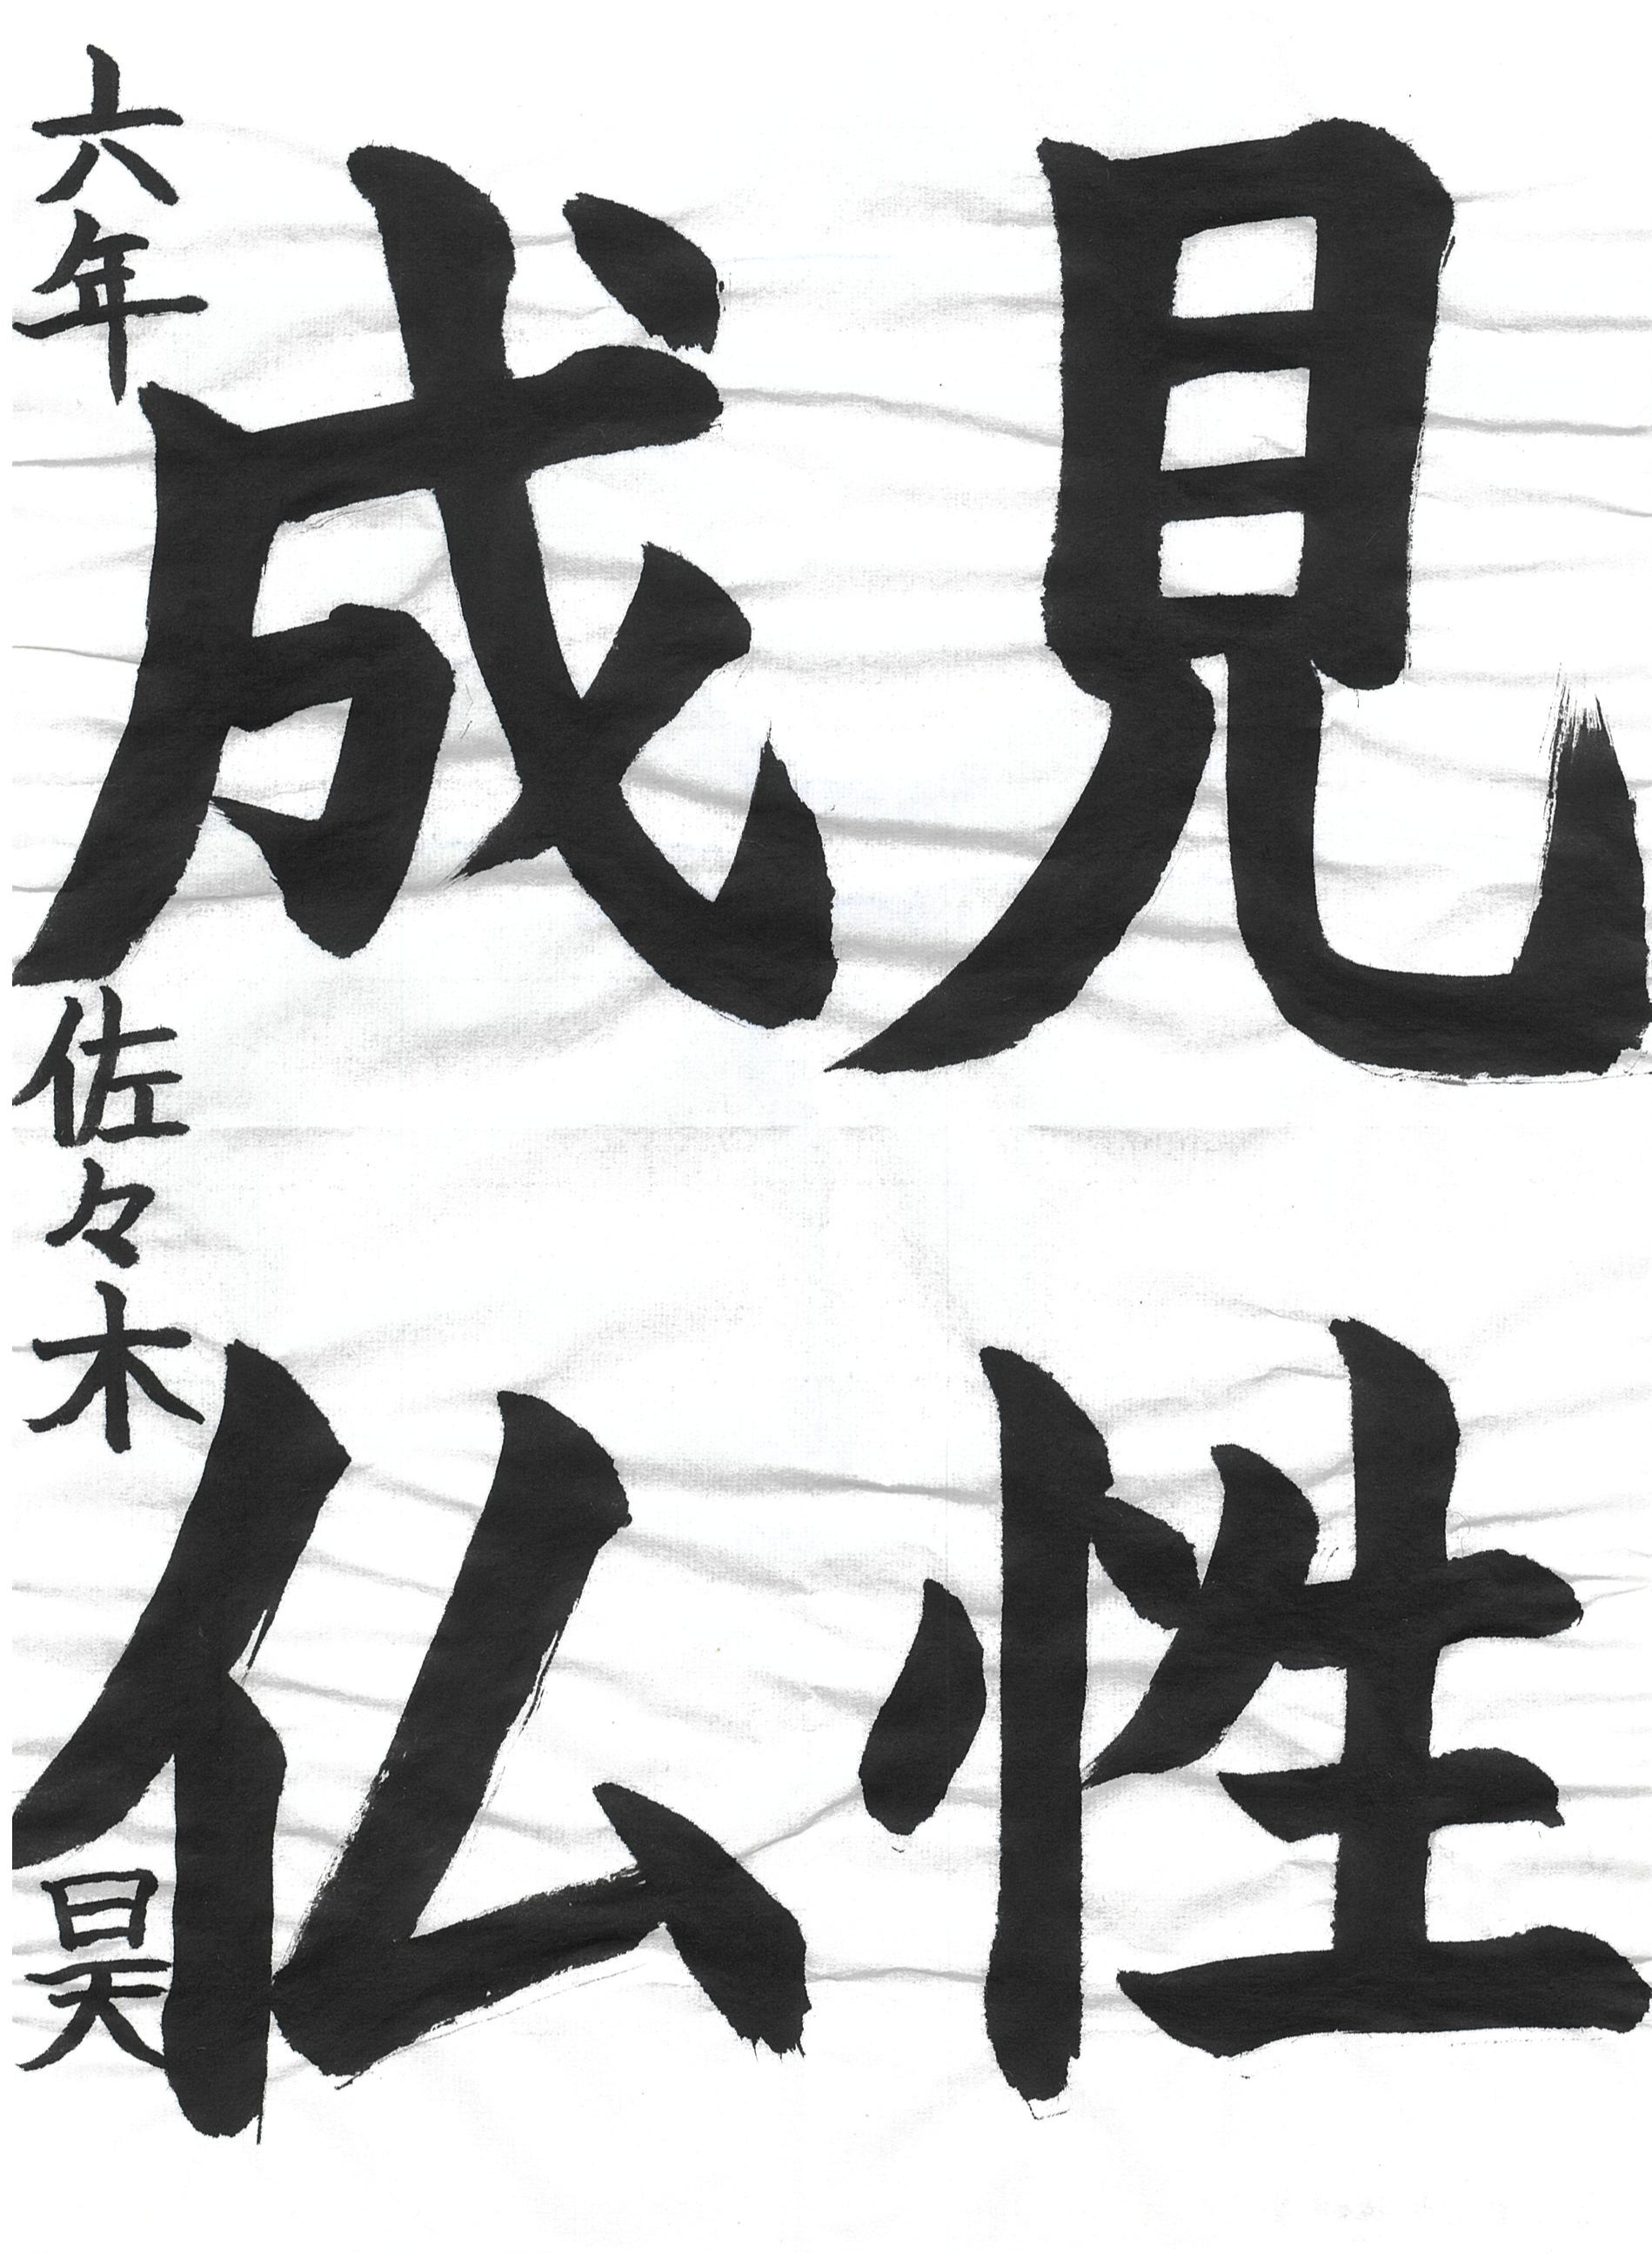 見性
成仏
六年 佐々木 昊